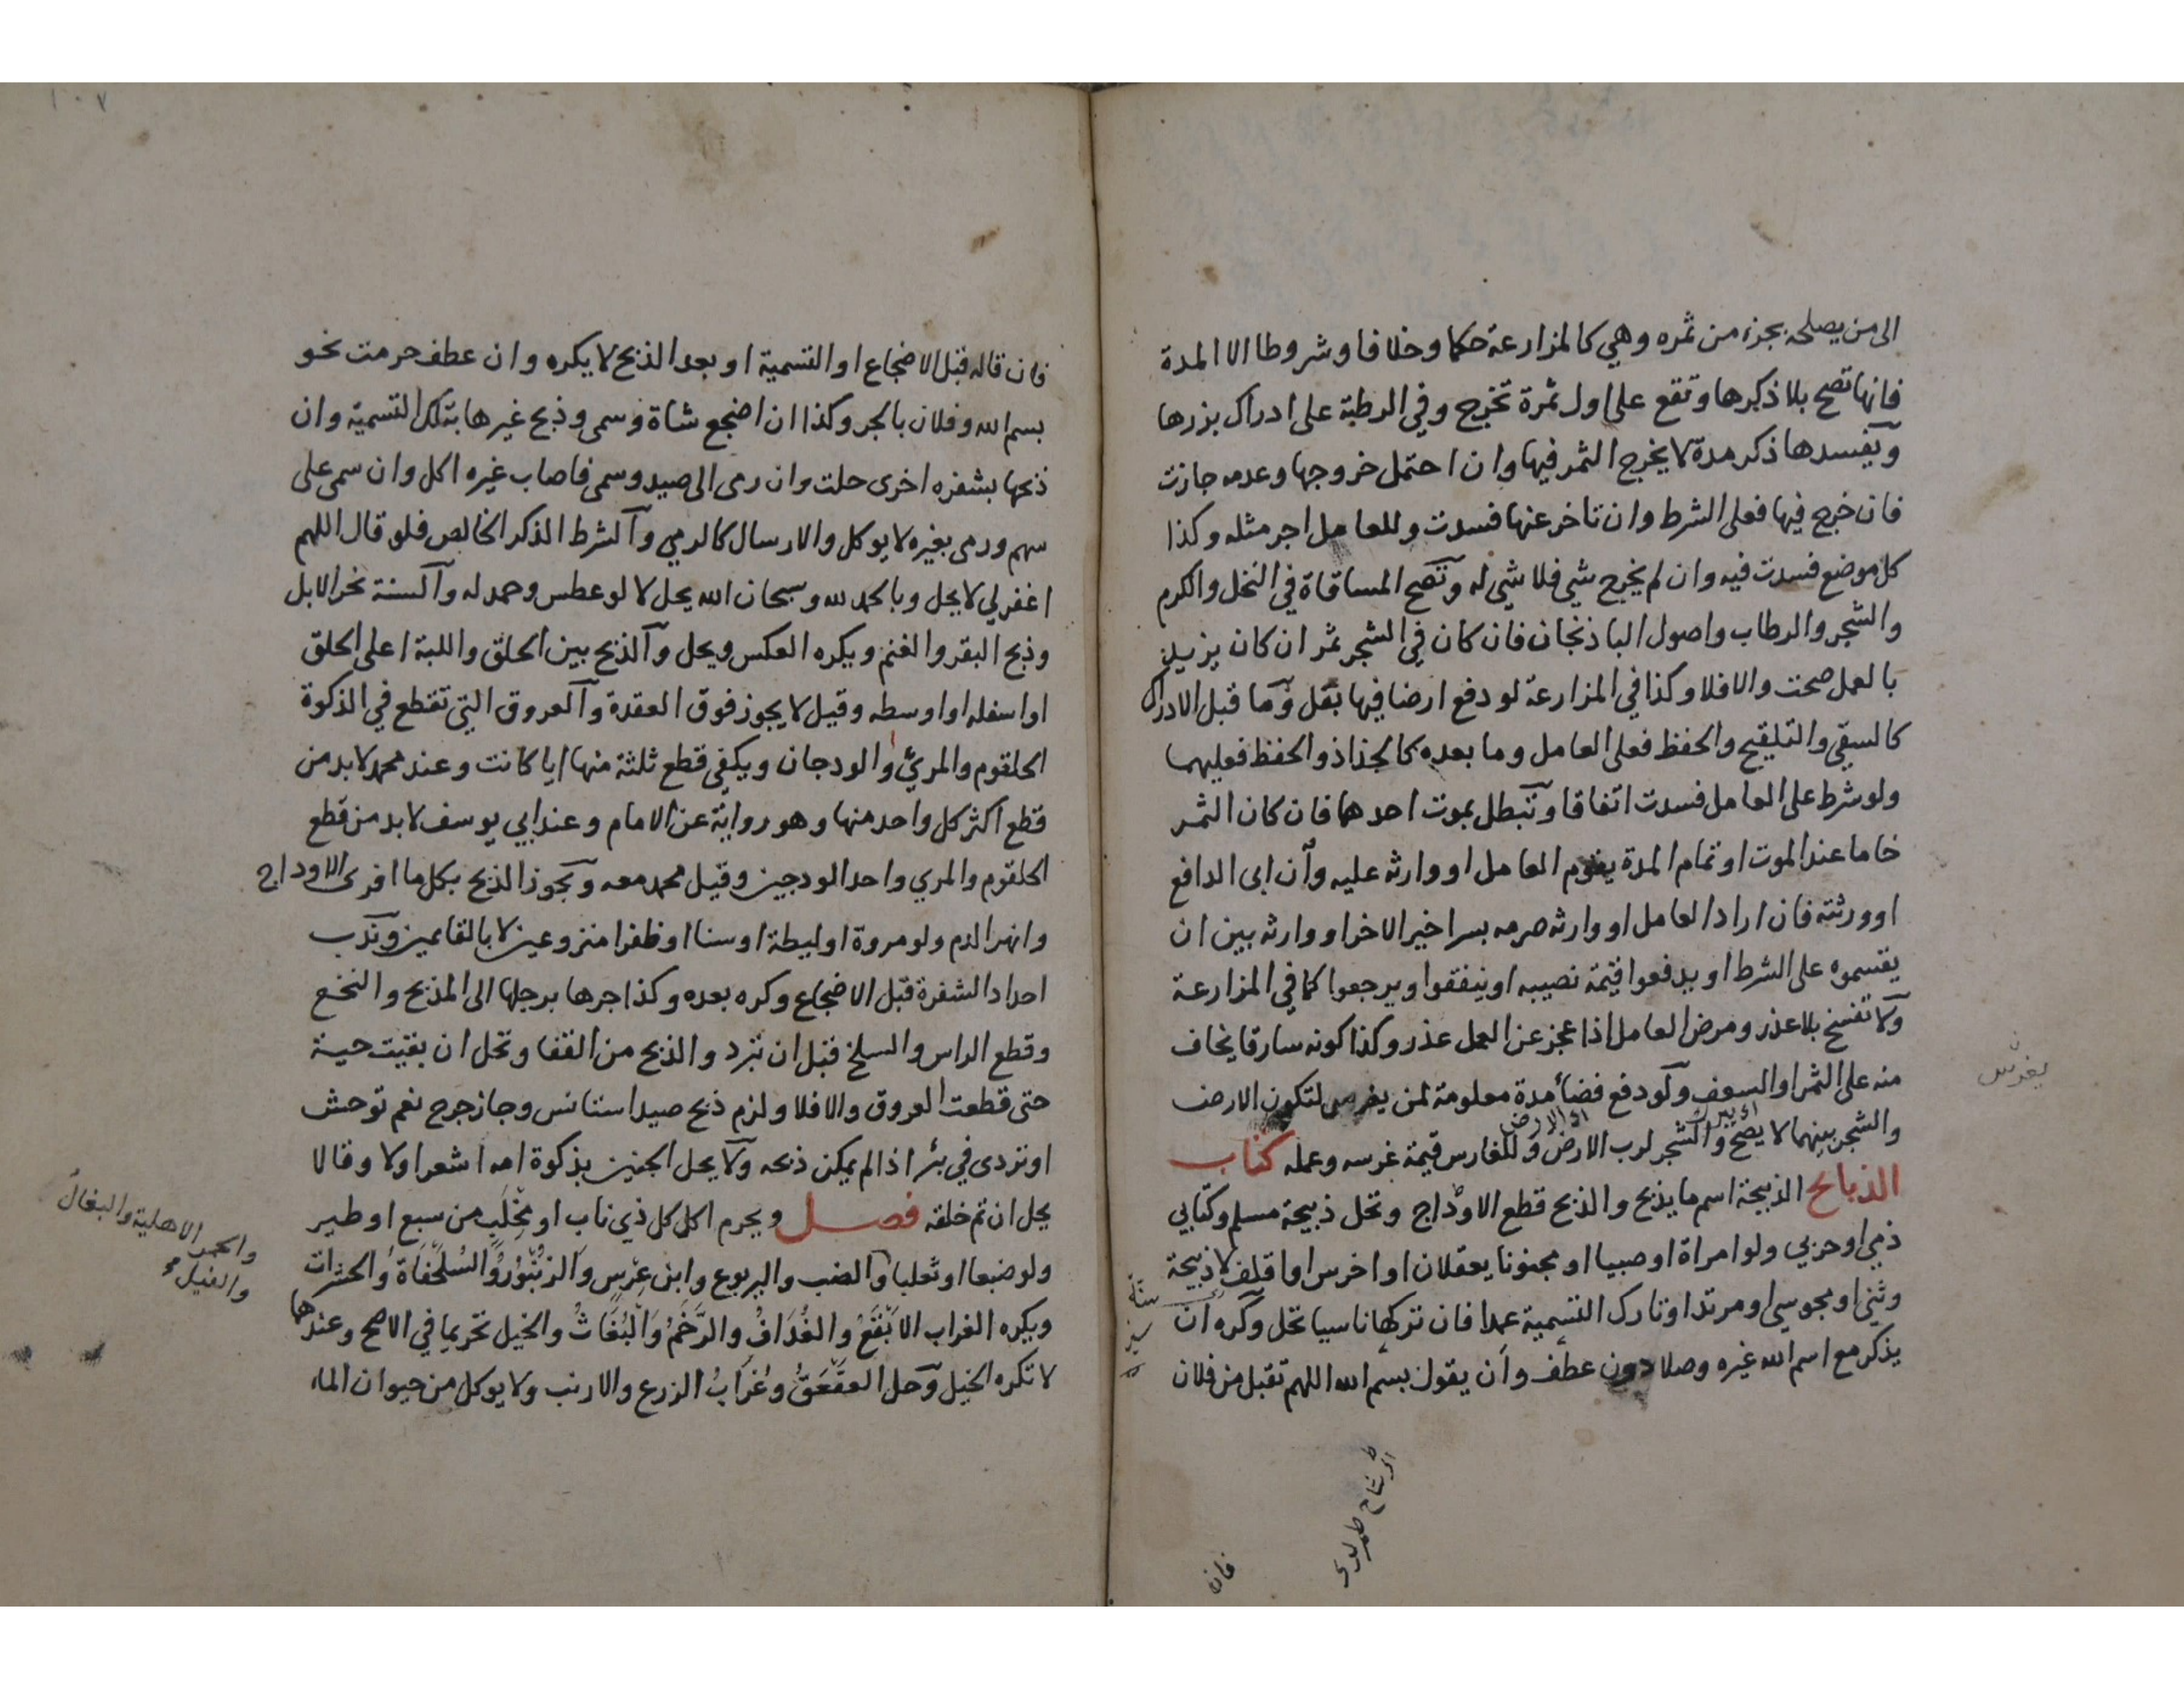 الى من يصلحه بجزء من ثمره وهي كالمزارعة حكما وخلافا وشروطا الا المدة
فانها تصح بلا ذكرها وتقع على اول ثمرة تخرج وفي الرطبة على ادراك بزرها
ويفسدها ذكر مدة لا يخرج الثمر فيها وان احتمل خروجها وعدمه جازت
فان خرج فيها فعلى الشرط وان تاخر عنها فسدت وللعامل اجر مثله وكذا
كل موضع فسدت فيه وان لم يخرج شي فلا شي له وتصح المساقاة في النخل والكرم
والشجر والرطاب واصول الباذنجان فان كان في الشجر ثمر ان كان يزيد
بالعمل صحت والا فلا وكذا في المزارعة لو دفع ارضا فيها بقل وما قبل الادراك
كالسقي والتلقيح والحفظ فعلى العامل وما بعده كالجذاذ والحفظ فعليهما
ولو شرط على العامل فسدت اتفاقا وتبطل بموت احدهما فان كان الثمر
خاما عند الموت او تمام المدة يقوم العامل او وارثه عليه وان ابى الدافع
او ورثته فان اراد العامل او وارثه صرمه بسرا خير الاخر او وارثه بين ان
يقسموه على الشرط او يدفعوا قيمة نصيبه او ينفقوا ويرجعوا كما في المزارعة
ولا تفسخ بلا عذر ومرض العامل اذا عجز عن العمل عذر وكذا كونه سارقا يخاف
منه على الثمر او السعف ولو دفع فضاء مدة معلومة لمن يغرس لتكون الارض
يغرس
والشجر بينهما لا يصح والشجر لرب الارض وللغارس قيمة غرسه وعمله كتاب
الذبائح الذبيحة اسم ما يذبح والذبح قطع الاوداج وتحل ذبيحة مسلم وكتابي
ذمي او حربي ولو امراة او صبيا او مجنونا يعقلان او اخرس او اقلف لا ذبيحة
وثني او مجوسي او مرتد او تارك التسمية عمدا فان تركها ناسيا تحل وكره ان
يذكر مع اسم الله غيره وصلا دون عطف وان يقول بسم الله اللهم تقبل من فلان
فان
١٠٧
فان قاله قبل الاضجاع او التسمية او بعد الذبح لا يكره وان عطف حرمت نحو
بسم الله وفلان بالجر وكذا ان اضجع شاة وسمى وذبح غيرها بتلك التسمية وان
ذبحها بشفره اخرى حلت وان رمى الى صيد وسمى فاصاب غيره اكل وان سمى على
سهم ورمى بغيره لا يوكل والارسال كالرمي والشرط الذكر الخالص فلو قال اللهم
اغفر لي لا يحل وبالحمد لله وسبحان الله يحل لا لو عطس وحمد له والسنة نحر الابل
وذبح البقر والغنم ويكره العكس ويحل والذبح بين الحلق واللبة اعلى الحلق
او اسفله او اوسطه وقيل لا يجوز فوق العقدة والعروق التي تقطع في الذكوة
الحلقوم والمرئ والودجان ويكفي قطع ثلثة منها ايا كانت وعند محمد لا بد من
قطع اكثر كل واحد منها وهو رواية عن الامام وعند ابي يوسف لا بد من قطع
الحلقوم والمري واحد الودجين وقيل محمد معه ويجوز الذبح بكل ما افرى الاوداج
وانهر الدم ولو مروة او ليطة او سنا او ظفرا منزوعين لا بالقائمين وندب
احداد الشفرة قبل الاضجاع وكره بعده وكذا جرها برجلها الى المذبح والنخع
وقطع الراس والسلخ قبل ان تبرد والذبح من القفا وتحل ان بقيت حية
حتى قطعت العروق والا فلا ولزم ذبح صيد استانس وجاز جرح نعم توحش
او تردى في بئر اذا لم يمكن ذبحه ولا يحل الجنين بذكوة امه اشعر اولا وقالا
يحل ان تم خلقه فصل ويحرم اكل كل ذي ناب او مخلب من سبع او طير
ولو ضبعا او ثعلبا والضب واليربوع وابن عرس والزنبور والسلحفاة والحشرات
والحمر الاهلية والبغال
والفيل
ويكره الغراب الابقع والغداف والرخم والبغاث والخيل تحريما في الاصح وعندهما
لا تكره الخيل وحل العقعق وغراب الزرع والارنب ولا يوكل من حيوان الماء